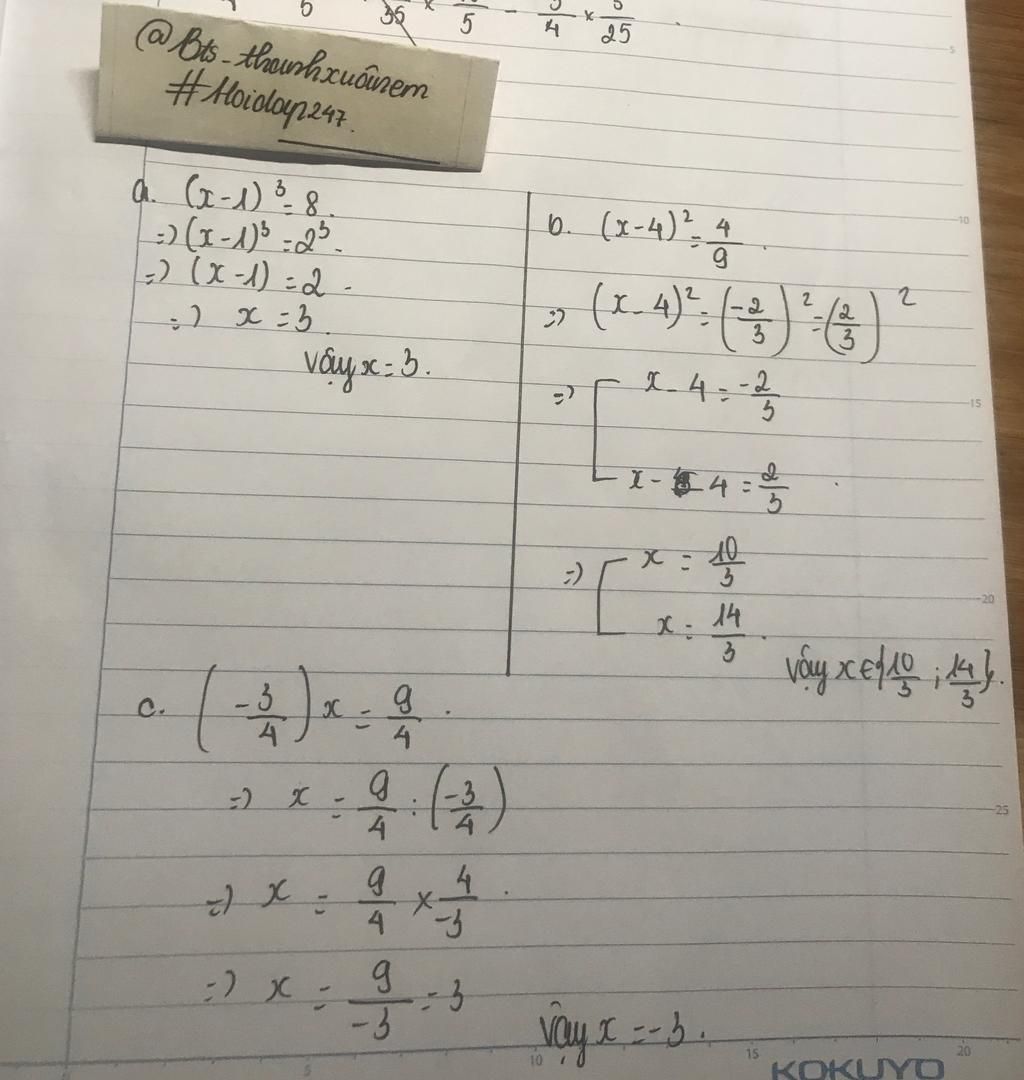 5 35 × 5 - 4 × 25
@Bts_thanhxuânem
#Hoidap247.
a. (x-1)³ = 8.
=> (x-1)³ = 2³.
=> (x-1) = 2.
=> x = 3.
Vậy x = 3.
b. (x-4)² = 4/9.
=> (x-4)² = (-2/3)² = (2/3)²
=> [ x-4 = -2/3
x - 4 = 2/3.
=> [ x = 10/3
x = 14/3.
Vậy x ∈ {10/3 ; 14/3}.
c. (-3/4)x = 9/4.
=> x = 9/4 : (-3/4)
=> x = 9/4 × 4/-3.
=> x = 9/-3 = 3
Vậy x = -3.
5
10
15
20
25
5 10 15 20
KOKUYO